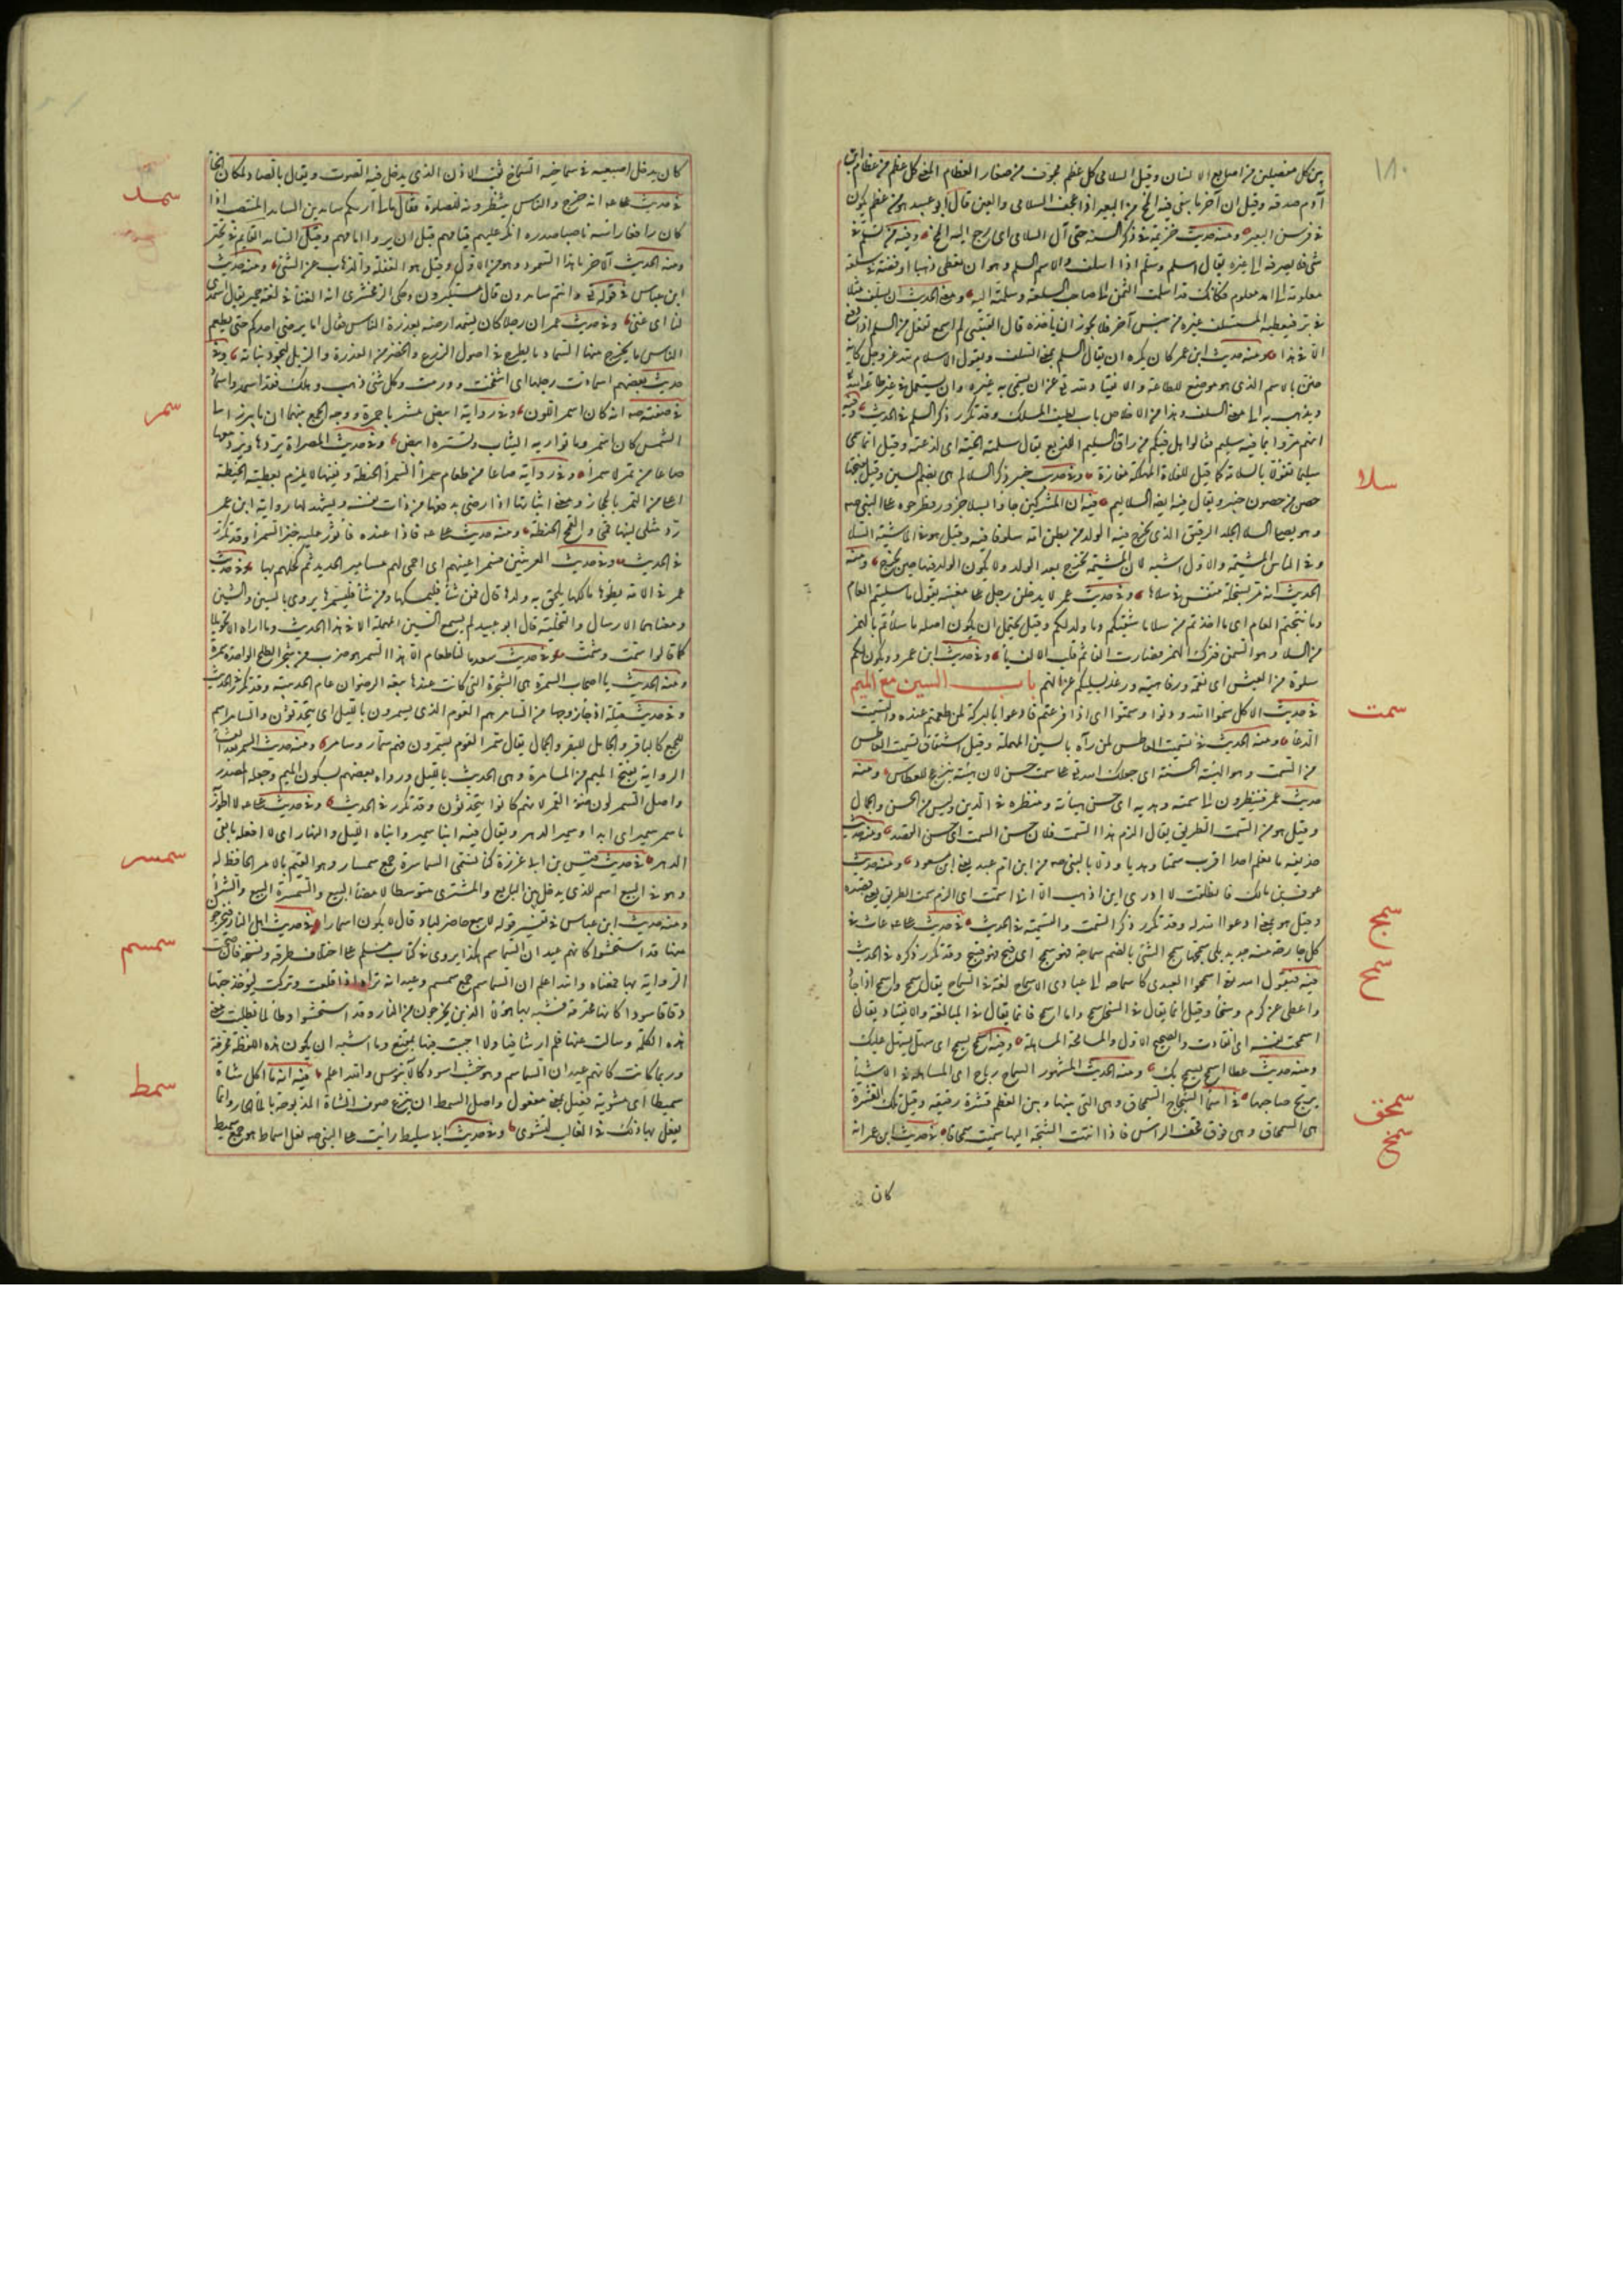 ١٨٠
بين كل مفصلين من اصابع الانسان وقيل السلامى كل عظم مجوف من صغار العظام المعنى كل عظم من عظام ابن
آدم صدقة وقيل ان آخر ما يبقى فيه المخ من البعير اذا عجف السلامى والعين قال ابو عبيد هو عظم يكون
في فرسن البعير ومنه حديث خزيمة في ذكر السنة حتى آل السلامى اى رجع اليه المخ وفيه من تسلم في
شئ فلا يصرفه الى غيره يقال اسلم وسلم اذا اسلف والاسم السلم وهو ان تعطى ذهبا او فضة في سلعة
معلومة الى امد معلوم فكانك قد اسلمت الثمن الى صاحب السلعة وسلمته اليه ومعنى الحديث ان يسلف مثلا
في بر فيعطيه المستسلف غيره من جنس آخر فلا يجوز ان ياخذه قال القتيبى لم اسمع تفعل من السلم اذا دفع
الا في هذا ومنه حديث ابن عمر كان يكره ان يقال السلم بمعنى السلف ويقول الاسلام لله عز وجل كانه
ضن بالاسم الذى هو موضع للطاعة والانقياد لله تع عن ان يسمى به غيره وان يستعمل في غير طاعة الله
ويذهب به الى معنى السلف وهذا من الاخلاص باب لطيف المسلك وقد تكرر ذكر السلم في الحديث وفيه
انهم مروا بماء فيه سليم فقالوا هل فيكم من راق السليم اللديغ يقال سلمته الحية اى لدغته وقيل انما سمى
سليما تفؤلا بالسلامة كما قيل للفلاة المهلكة مفازة وفي حديث خيبر ذكر السلالم هى بضم السين وقيل بفتحها
حصن من حصون خيبر ويقال فيه ايضا السلاليم
سلا
فيه ان المشركين جاؤا بسلا جزور فطرحوه على النبى صم
وهو يصلى السلا الجلد الرقيق الذى يخرج فيه الولد من بطن امه ملفوفا فيه وقيل هو في الماشية السلا
وفي الناس المشيمة والاول اشبه لان المشيمة تخرج بعد الولد ولا يكون الولد فيها حين يخرج ومنه
الحديث انه مر بسخلة تتنفس في سلاها وفي حديث عمر لا يدخلن رجل على مغيبة يقول ما سليتم العام
وما نتجتم العام اى ما اخذتم من سلا ماشيتكم وما ولد لكم وقيل يحتمل ان يكون اصله ما سلأتم بالهمز
من السلاء وهو السمن فترك الهمز فصارت الفا ثم قلب الالف ياء وفي حديث ابن عمرو ويكون لكم
سلوة من العيش اى نعمة ورفاهية ورغد يسليكم عن الهم باب السين مع الميم
سمت
في حديث الاكل سموا الله ودنوا وسمتوا اى اذا فرغتم فادعوا بالبركة لمن طعمتم عنده والتسميت
الدعاء ومنه الحديث في تسميت العاطس لمن رآه بالسين المهملة وقيل اشتقاق تسميت العاطس
من السمت وهو الهيئة الحسنة اى جعلك الله تع على سمت حسن لان هيئته تنزعج للعطاس ومنه
حديث عمر فينظرون الى سمته وهديه اى حسن هيأته ومنظره في الدين وليس من الحسن والجمال
وقيل هو من السمت الطريق يقال الزم هذا السمت فلان حسن السمت اى حسن القصد ومنه حديث
حذيفة ما نعلم احدا اقرب سمتا وهديا ودلا بالنبى صم من ابن ام عبد يعنى ابن مسعود ومنه حديث
عوف بن مالك فانطلقت لا ادرى اين اذهب الا اننى اسمت اى الزم سمت الطريق يعنى قصده
وقيل هو بمعنى ادعو الله له وقد تكرر ذكر السمت والتسميت في الحديث
سمج
في حديث على عم عاث في
كل جارحة منه جديد بلى سمجها سمج الشئ بالضم سماجة فهو سمج اى قبح فهو قبيح وقد تكرر ذكره في الحديث
سمح
فيه فيقول الله تع اسمحوا العبدى كاسماحه الى عبادى الاسماح لغة في السماح يقال سمح واسمح اذا جاد
واعطى عن كرم وسخاء وقيل انما يقال في السخاء سمح واما اسمح فانما يقال في المبالغة والانقياد يقال
اسمحت نفسه اى انقادت والصحيح الاول والمسامحة المساهلة وفيه اسمح يسمح اى سهل يسهل عليك
ومنه حديث عطاء اسمح يسمح بك ومنه الحديث المشهور السماح رباح اى المساهلة في الاشياء
يربح صاحبها
سمحق
في اسماء الشجاج السمحاق وهى التى بينها وبين العظم قشرة رقيقة وقيل تلك القشرة
هى السمحاق وهى فوق قحف الراس فاذا انتهت الشجة اليها سميت سمحاقا
سمخ
في حديث ابن عمر انه
كان
كان يدخل اصبعيه في سماخيه السماخ ثقب الاذن الذى يدخل فيه الصوت ويقال بالصاد لمكان الخاء
سمد
في حديث على عم انه خرج والناس ينتظرونه للصلوة فقال مالى اراكم سامدين السامد المنتصب اذا
كان رافعا راسه ناصبا صدره انكر عليهم قيامهم قبل ان يروا امامهم وقيل السامد القايم في تحير
ومنه الحديث الآخر ما هذا السمود وهو من الاول وقيل هو الغفلة والذهاب عن الشئ ومنه حديث
ابن عباس في قوله تع وانتم سامدون قال مستكبرون وحكى الزمخشرى انه الغناء في لغة حمير يقال اسمدى
لنا اى غنى وفي حديث عمر ان رجلا كان يسمد ارضه بعذرة الناس فقال اما يرضى احدكم حتى يطعم
الناس ما يخرج منها السماد ما يطرح في اصول الزرع والخضر من العذرة والزبل ليجود نباته وفي
حديث بعضهم اسمادت رجلها اى انتفخت وورمت وكل شئ ذهب وهلك فقد اسمد واسماد
سمر
في صفته صم انه كان اسمر اللون وفي رواية ابيض مشربا حمرة ووجه الجمع بينهما ان ما يبرز الى
الشمس كان اسمر وما تواريه الثياب وتستره ابيض وفي حديث المصراة يردها ويرد معها
صاعا من تمر لا سمراء وفي رواية صاعا من طعام سمراء السمراء الحنطة ونفيها لا يلزم بعطية الحنطة
اعلى من التمر بالحجاز ومعنى اثباتها اذا رضى بدفعها من ذات نفسه ويشهد لها رواية ابن عمر
رد مثلى لبنها قمحا والقمح الحنطة ومنه حديث على عم فاذا عنده فاثور عليه خبز السمراء وقد تكرر
في الحديث وفي حديث العرنيين فسمر اعينهم اى احمى لهم مسامير الحديد ثم كحلهم بها وفي حديث
عمر في الامة يطؤها مالكها يلحق به ولدها قال فمن شاء فليمسكها ومن شاء فليسمرها يروى بالسين والشين
ومعناهما الارسال والتخلية قال ابو عبيد لم يسمع السين المهملة الا في هذا الحديث وما اراه الا تحويلا
كما قالوا سمت وشمت وفي حديث سعد ما لنا طعام الا هذا السمر هو ضرب من شجر الطلح الواحدة سمرة
ومنه الحديث يا اصحاب السمرة هى الشجرة التى كانت عندها بيعة الرضوان عام الحديبية وقد تكرر في الحديث
وفي حديث قيلة اذ جاء زوجها من السامر هم القوم الذى يسمرون بالليل اى يتحدثون والسامر اسم
للجمع كالباقر والجامل للبقر والجمال يقال سمر القوم يسمرون فهم سمار وسامر ومنه حديث السمر بعد العشاء
الرواية بفتح الميم من المسامرة وهى الحديث بالليل ورواه بعضهم بسكون الميم وجعله المصدر
واصل السمر لون ضوء القمر لانهم كانوا يتحدثون وقد تكرر في الحديث وفي حديث على عم لا اطور به
ما سمر سمير اى ابدا وسمير الدهر ويقال فيه ابنا سمير وابناه الليل والنهار اى لا افعله ما بقى
الدهر
سمسر
في حديث قيس بن ابى غرزة كنا نسمى السماسرة جمع سمسار وهو القيم بالامر الحافظ له
وهو في البيع اسم للذى يدخل بين البايع والمشترى متوسطا لامضاء البيع والسمسرة البيع والشراء
ومنه حديث ابن عباس في تفسير قوله لا يبع حاضر لباد قال لا يكون له سمسارا
سمسم
في حديث اهل النار فيخرجون
منها قد امتحشوا كانهم عيدان السماسم هكذا يروى في كتاب مسلم على اختلاف طرقه ونسخه فان صحت
الرواية بها فمعناه والله اعلم ان السماسم جمع سمسم وعيدانه تراها اذا قلعت وتركت ليؤخذ حبها
دقاقا سودا كانها محترقة فشبه بها هؤلاء الذين يخرجون من النار وقد امتحشوا وطالما تطلبت معنى
هذه الكلمة وسالت عنها فلم ار شافيا ولا اجبت فيها بمقنع وما اشبه ان يكون هذه اللفظة محرفة
وربما كانت كانهم عيدان الساسم وهو خشب اسود كالآبنوس والله اعلم
سمط
فيه انه ما اكل شاة
سميطا اى مشوية فعيل بمعنى مفعول واصل السمط ان ينزع صوف الشاة المذبوحة بالماء الحار وانما
يفعل بها ذلك في الغالب لتشوى وفي حديث ابى سليط رايت على النبى صم نعل اسماط هو جمع سميط